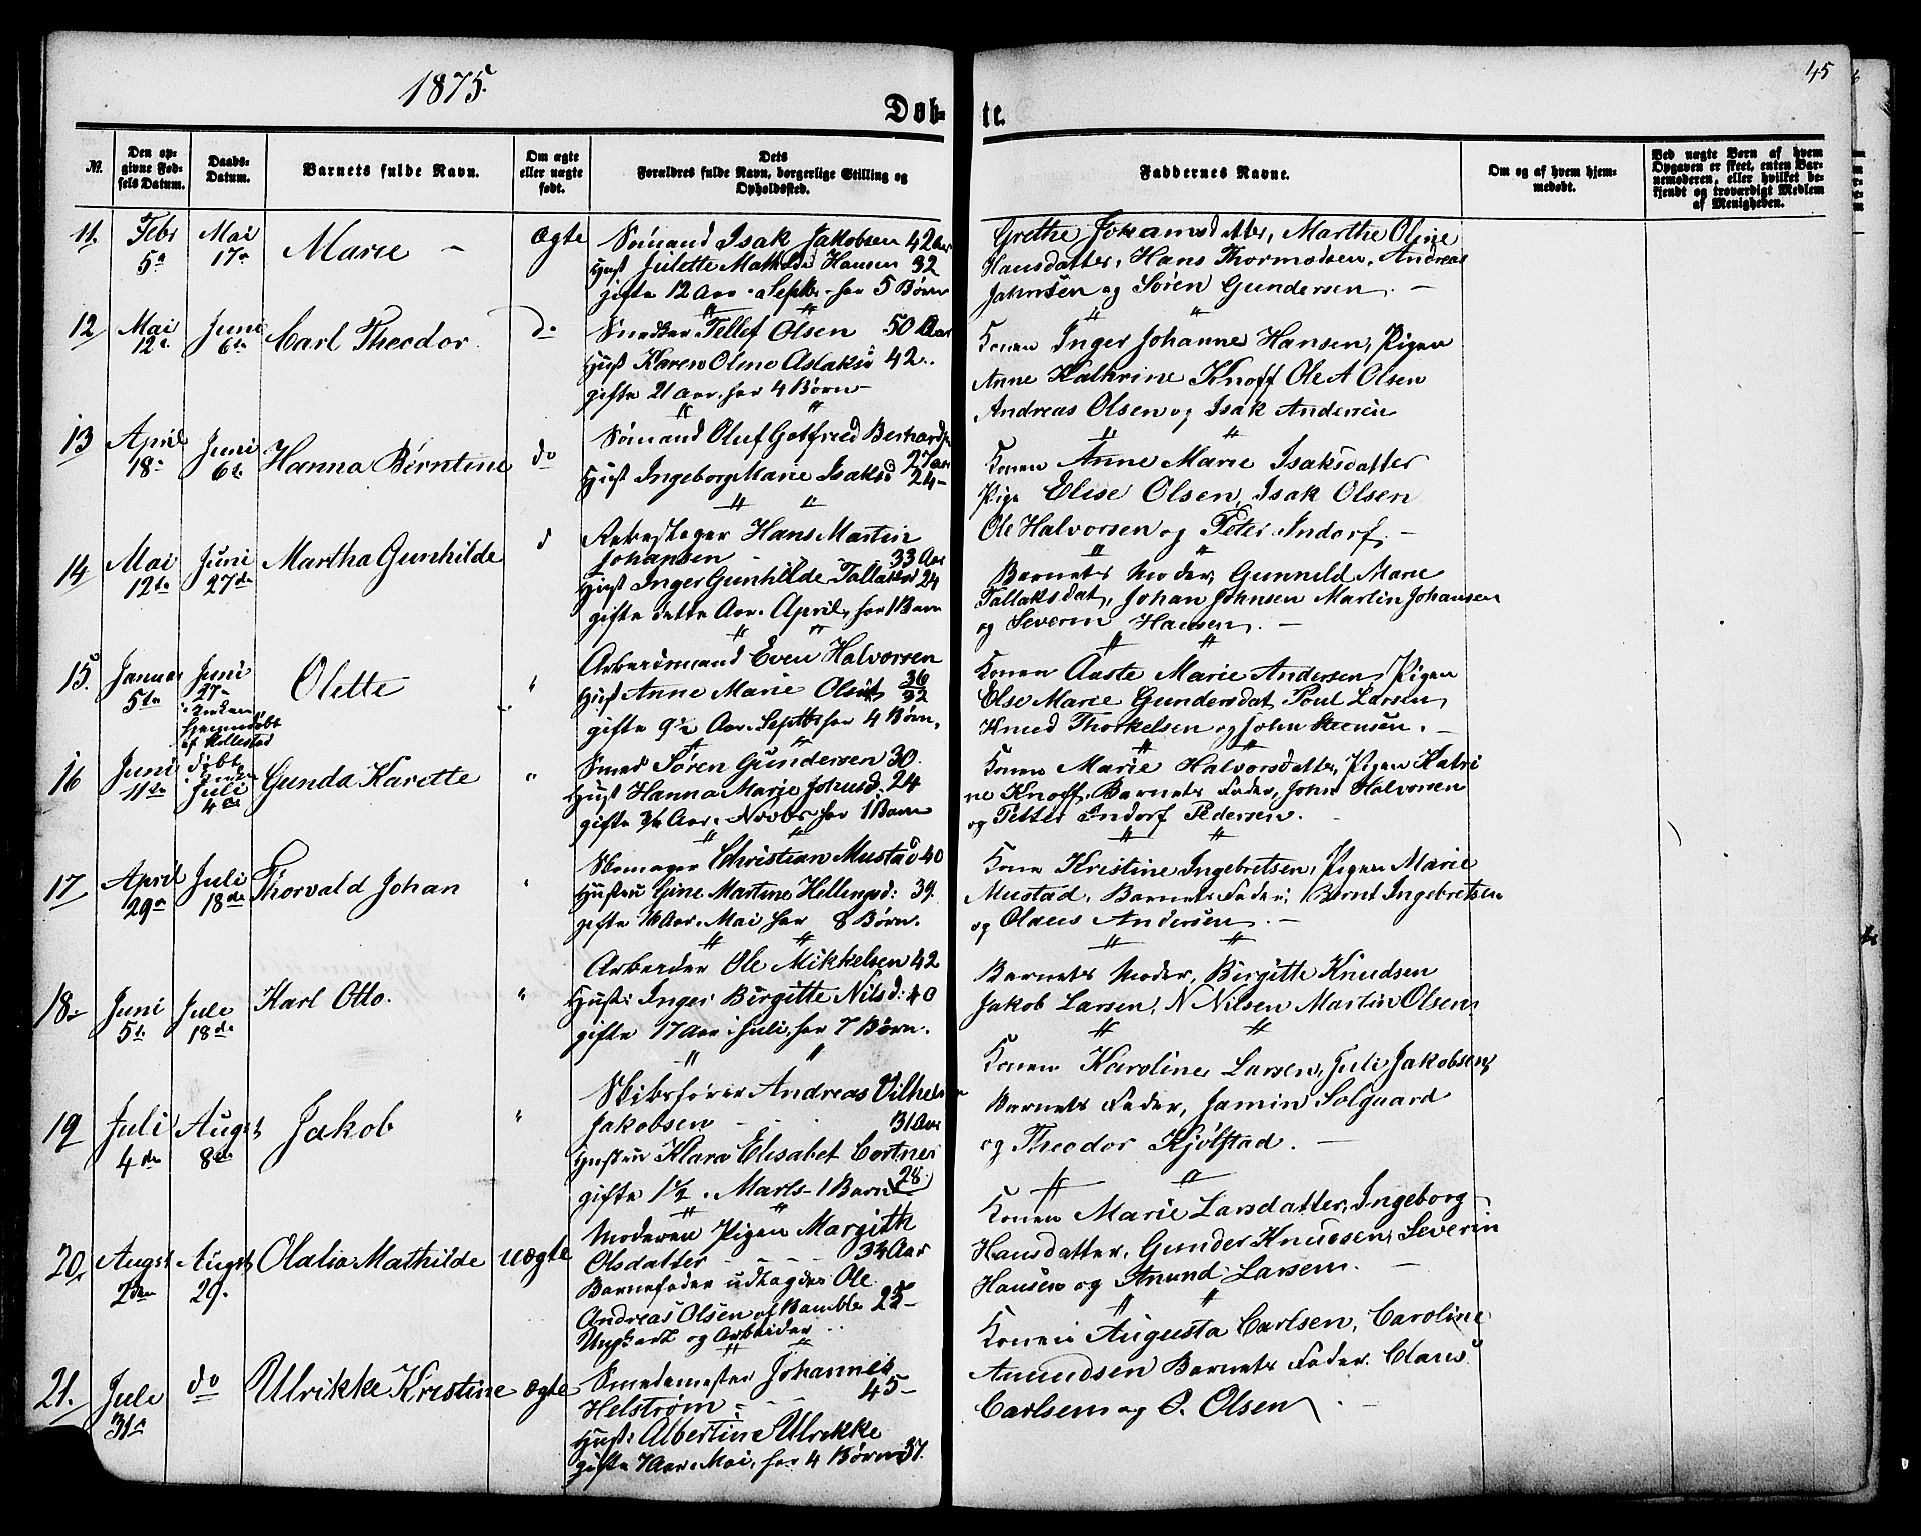 1875.
45
Døbte.
№.
Den opgivne Fødsels Datum.
Daabs-Datum.
Barnets fulde Navn.
Om ægte eller uægte født.
Dets Forældres fulde Navn, borgerlige Stilling og Opholdssted.
Faddernes Navne.
Om og af hvem hjemmedøbt.
Ved uægte Børn af hvem Opgaven er skeet, enten Barnemoderen, eller hvilket bekjendt og troværdigt Medlem af Menigheden.
11. Febr 5te Mai 17de Marie - ægte
Sømand Isak Jakobsen 42 Aar
Hust Julette Mathilde Hansen 32
gifte 12 Aar i Septbr. har 5 Børn
Grethe Johannsdatter, Marthe Oline
Hansdatter, Hans Thormodsen, Andreas
Jahnsen og Søren Gundersen. -
12 Mai 12te Juni 6te Carl Theodor. do
Snedker Tellef Olsen 50 Aar
Hust Karen Oline Aslaksd 42..
gifte 21 Aar. har 4 Børn -
Konen Inger Johanne Hansen, Pigen
Anne Kathrine Knoff Ole A Olsen
Andreas Olsen og Isak Andersen
13 April 18de Juni 6te Hanna Berntine do
Sømand Oluf Gotfried Berhards
27 aar
Hust Ingeborg Marie Isaksd 24-
Konen Anne Marie Isaksdatter
Pige Elise Olsen, Isak Olsen
Ole Halvorsen og Peter Indorf. -
14 Mai 12te Juni 27de Martha Gunhilde d
Rebslager Hans Martin
Johansen - 33 Aar
Hust Inger Gunhilde Tallaksd 24
gifte dette Aar. April, har 1 Barn
Barnets Moder, Gunneld Marie
Tallaksdat, Johan Johnsen Martin Johansen
og Severin Hansen. -
15. Januar 5te Juni 27de i Kirken Hjemmedøbt af Mollestad Olette "
Arbeidsmand Even Halvorsen
Hust Anne Marie Olsdt 36 32
gifte 9½ Aar. Septbr har 4 Børn.
Konen Aaste Marie Andersen, Pigen
Else Marie Gundersdat, Poul Larsen,
Knud Thorkelsen og John Steensen. -
16 Juni 11te døbt i Kirken Juli 4de Gunda Karette "
Smed Søren Gundersen 30.
Hust Hanna Marie Johnsd. 24
gifte ¾ Aar. Novbr har 1 Barn
Konen Marie Halvorsdatter, Pigen Katri
ne Knoff, Barnets Fader, John Halvorsen
og Petter Indorf Pedersen.
17 April 29de Juli 18de Thorvald Johan "
Skomager Christian Mustad 40
Hustru Gine Martine Hellingsd: 39.
gifte 16 Aar. Mai har 8 Børn.
Kone Kristine Ingebretsen, Pigen Marie
Mustad, Barnets Fader, Bernt Ingebretsen
og Olaus Andersen. -
18de Juni 5te Jule 18de Karl Otto. "
Arbeider Ole Mikkelsen 42
Hust: Inger Birgitte Nilsd: 40
gifte 17 Aar i Juli, har 7 Børn.
Barnets Moder, Birgitte Knudsen
Jakob Larsen, N Nilsen Martin Olsen.
19 Juli 4de Augst 8de Jakob "
Skibsfører Andreas Vilhelm
Jakobsen - 31 Aar
Hustru Klara Elisabet Cortnes
28.
gifte 1½. Marts - 1 Barn
Konen Karoline Larsen, Juli Jakobsen,
Barnets Fader, Jamin Solgaard
og Theodor Kjølstad. -
20. Augst 2den Augst 29. Olalia Mathilde uægte
Moderen Pigen Margith
Olsdatter - - - 34 Aar
Barnefader udlagdes Ole
Andreas Olsen af Bamble 25-
Ungkarl og Arbeider
Konen Marie Larsdatter, Ingeborg
Hansdatter, Gunder Knudsen, Severin
Hansen og Anund Larsen. -
21. Jule 31te do Ulrikke Kristine ægte
Smedemester Johannes
Helstrøm - - 45-
Hust: Albertine Ulrikke
gifte 7 Aar. Mai, har 4 Børn 37.
Konen Augusta Carlsen, Caroline
Anundsen Barnets Fader. Claus
Carlsen og O. Olsen. -